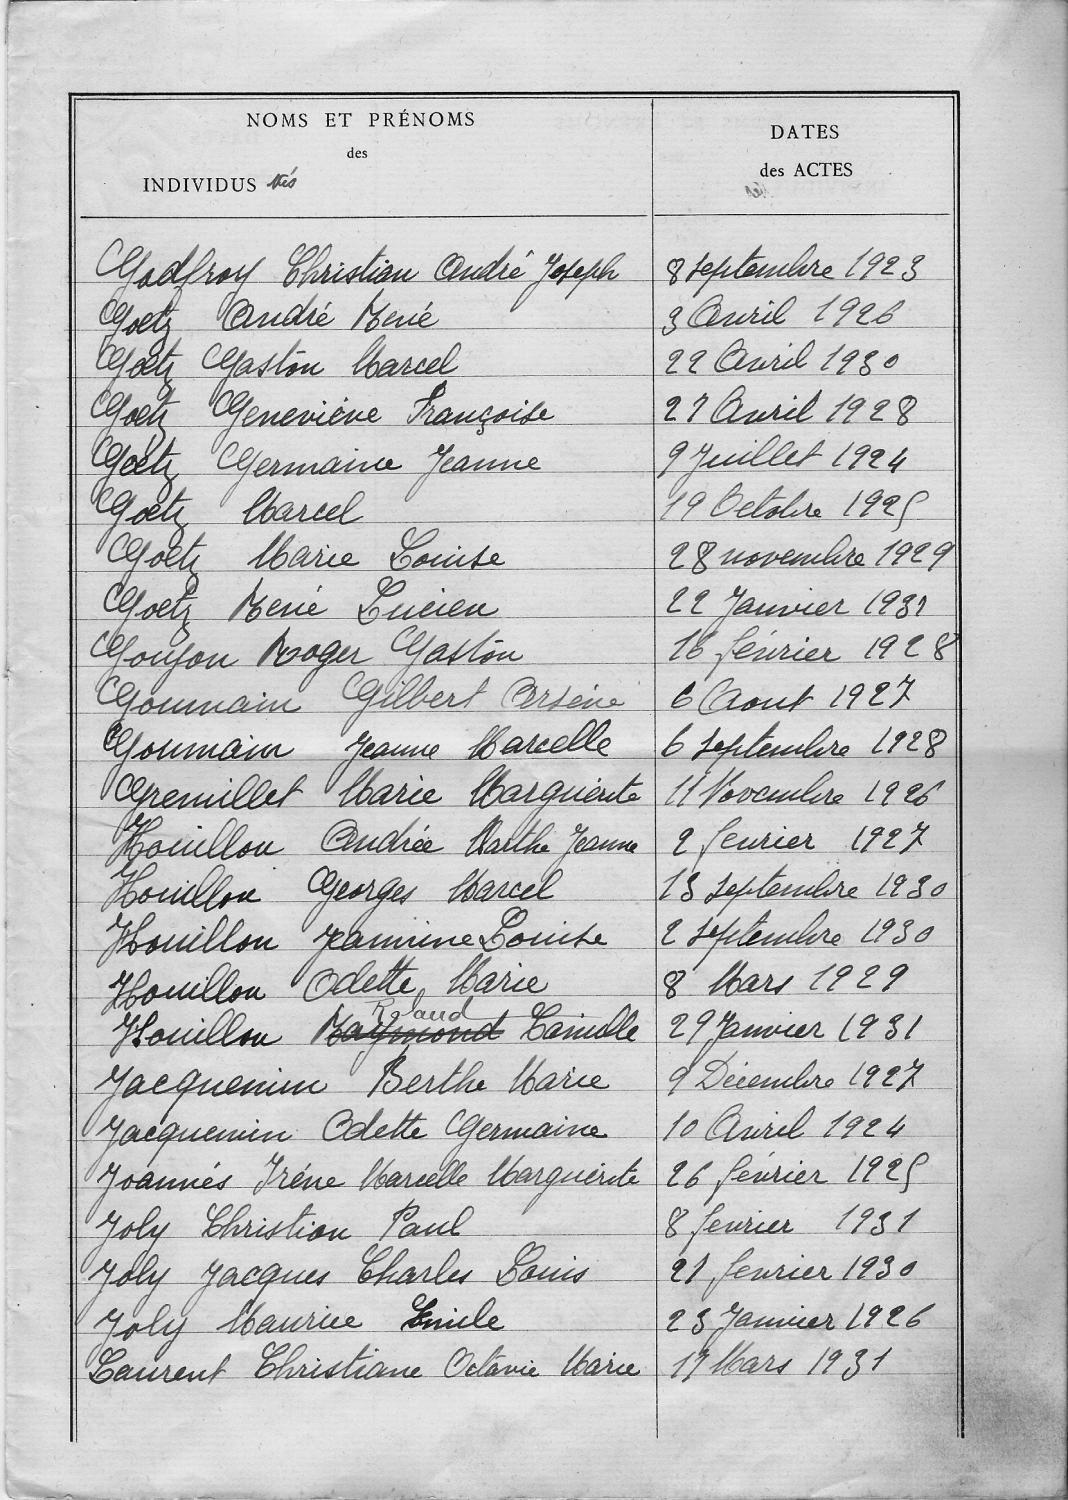 NOMS ET PRÉNOMS
des
INDIVIDUS Nés
DATES
des ACTES
Godfroy Christian André Joseph 8 septembre 1923
Goetz André René 3 Avril 1926
Goetz Gaston Marcel 22 Avril 1930
Goetz Geneviève Françoise 27 Avril 1928
Goetz Germaine Jeanne 9 Juillet 1924
Goetz Marcel 19 Octobre 1925
Goetz Marie Louise 28 novembre 1929
Goetz René Lucien 22 Janvier 1931
Goujon Roger Gaston 16 février 1928
Goumain Gilbert Arsène 6 Aout 1927
Goumain Jeanne Marcelle 6 septembre 1928
Gremillet Marie Marguerite 11 Novembre 1926
Houillon Andrée Marthe Jeanne 2 fevrier 1927
Houillon Georges Marcel 13 septembre 1930
Houillon Jeannine Louise 2 septembre 1930
Houillon Odette Marie 8 Mars 1929
Roland
Houillon Raymond Camille 29 Janvier 1931
Jacquemin Berthe Marie 9 Décembre 1927
Jacquemin Odette Germaine 10 Avril 1924
Joannès Irène Marcelle Marguerite 26 février 1925
Joly Christian Paul 8 fevrier 1931
Joly Jacques Charles Louis 21 fevrier 1930
Joly Maurice Emile 23 Janvier 1926
Laurent Christiane Octavie Marie 17 Mars 1931